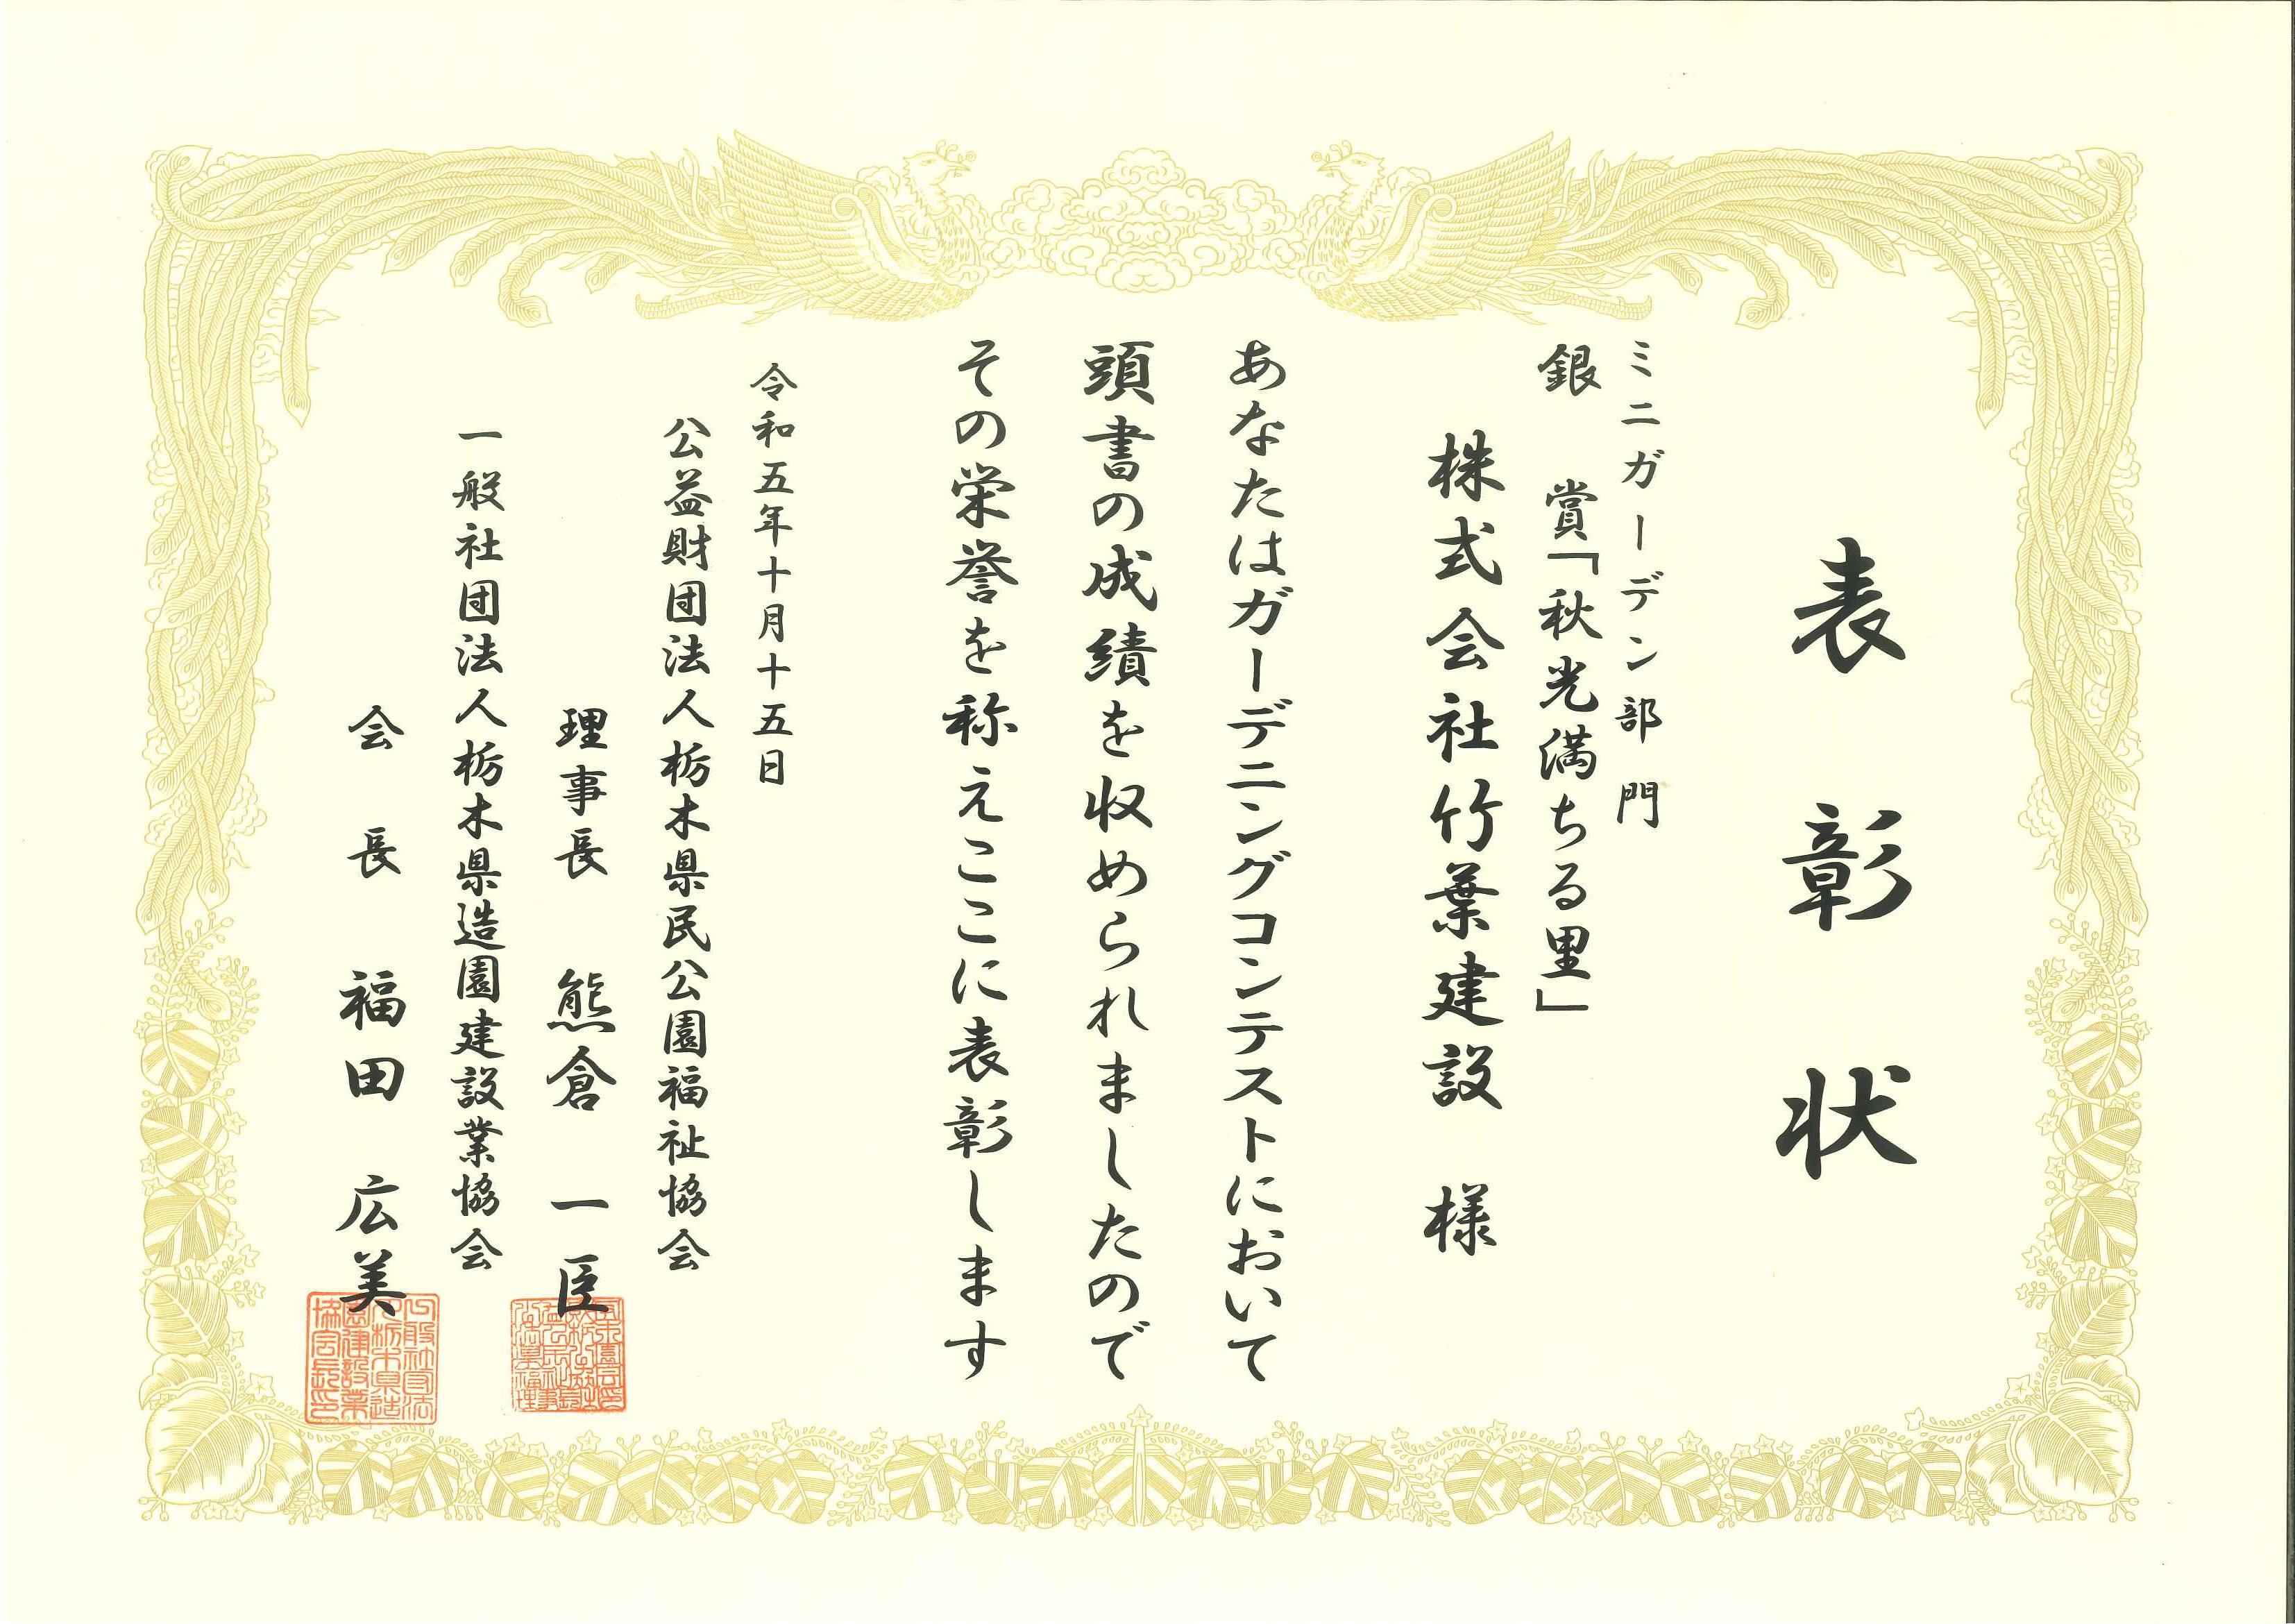 表彰状
ミニガーデン部門
銀 賞「秋光満ちる里」
株式会社竹葉建設 様
あなたはガーデニングコンテストにおいて
頭書の成績を収められましたので
その栄誉を称えここに表彰します
令和五年十月十五日
公益財団法人栃木県民公園福祉協会
理事長 熊倉一臣
一般社団法人栃木県造園建設業協会
会長 福田広美